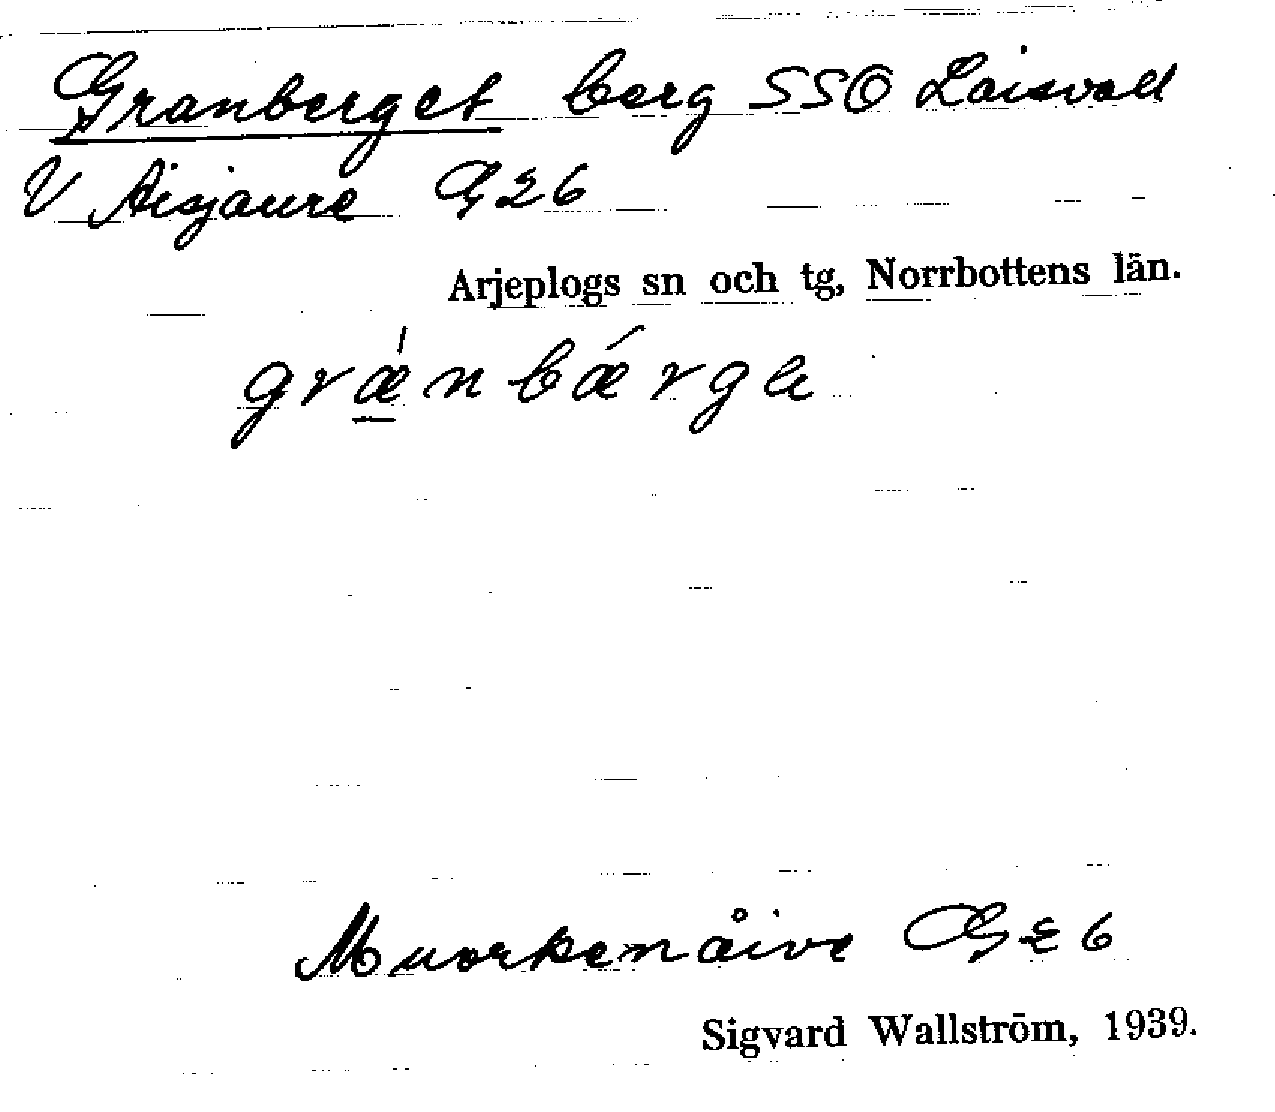 Granberget berg SSO Laisvall
V Aisjaure G E 6
Arjeplogs sn och tg, Norrbottens län.
grǽ̲nbǽrga
Muorkenåive G E 6
Sigvard Wallström, 1939.